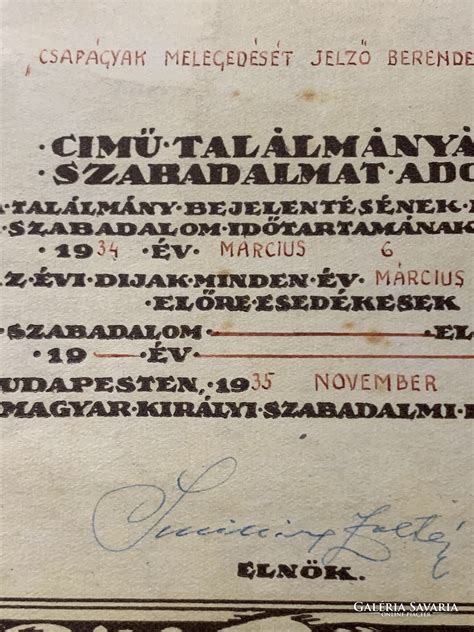 CSAPÁGYAK MELEGEDÉSÉT JELZŐ BERENDE
·CIMŰ·TALÁLMÁNYA
·SZABADALMAT·ADO
A·TALÁLMÁNY·BEJELENTÉSÉNEK·
SZABADALOM·IDŐTARTAMÁNAK
·1934·ÉV· MÁRCIUS 6
AZ·ÉVI·DIJAK·MINDEN·ÉV· MÁRCIUS
·ELŐRE·ESEDÉKESEK
·SZABADALOM· ·EL
·19 ·ÉV·
BUDAPESTEN,·1935 NOVEMBER
MAGYAR·KIRÁLYI·SZABADALMI·
Zoltán
ELNÖK.
GALERIA SAVARIA
ONLINE PIACTÉR